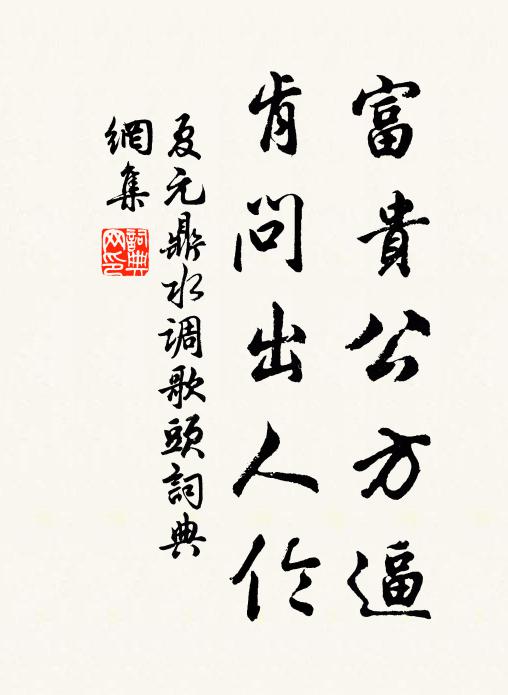 富貴公方逼
肯問出人伦
夏元鼎水调歌頭詞典
網集
詞典
网印